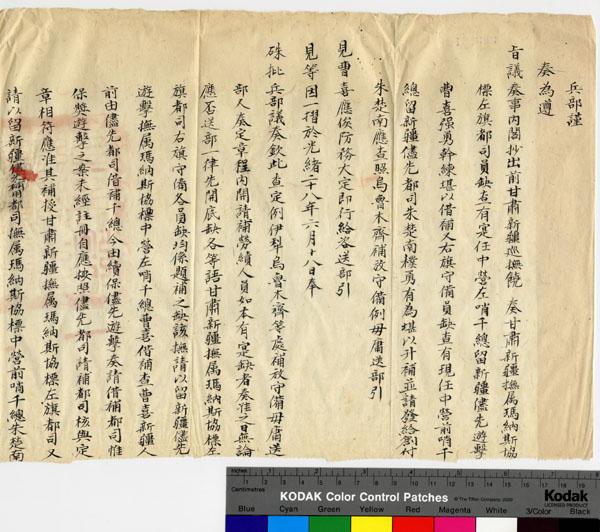 兵部謹
奏為遵
旨議奏事內閣抄出前甘肅新疆巡撫饒 奏甘肅新疆撫屬瑪納斯協
標左旗都司員缺查有實任中營左哨千總留新疆儘先遊擊
曹喜强勇幹練堪以借補又右旗守備員缺查有現任中營前哨千
總留新疆儘先都司朱楚南樸勇有為堪以升補並請發給劄付
朱楚南應查照烏魯木齊補放守備例毋庸送部引
見曹喜應俟防務大定即行給咨送部引
見等因一摺於光緒二十八年六月十八日奉
硃批兵部議奏欽此查定例伊犁烏魯木齊等處補放守備毋庸送
部又奏定章程內開請補勞績人員如本有實缺者奏准之日無論
應否送部一律先開底缺各等語甘肅新疆撫屬瑪納斯協標左
旗都司右旗守備各員缺均係題補之缺該撫請以留新疆儘先
遊擊撫屬瑪納斯協標中營左哨千總曹喜借補查曹喜新疆人
前由儘先都司借補千總今由續保儘先遊擊奏請借補都司惟
保獎遊擊之案未經註冊自應按照儘先都司請補都司核與定
章相符應准其補授甘肅新疆撫屬瑪納斯協標左旗都司又
請以留新疆補用都司撫屬瑪納斯協標中營前哨千總朱楚南
Inches
Centimetres
KODAK Color Control Patches
© The Tiffen Company, 2000
Kodak
LICENSED PRODUCT
Blue
Cyan
Green
Yellow
Red
Magenta
White
3/Color
Black